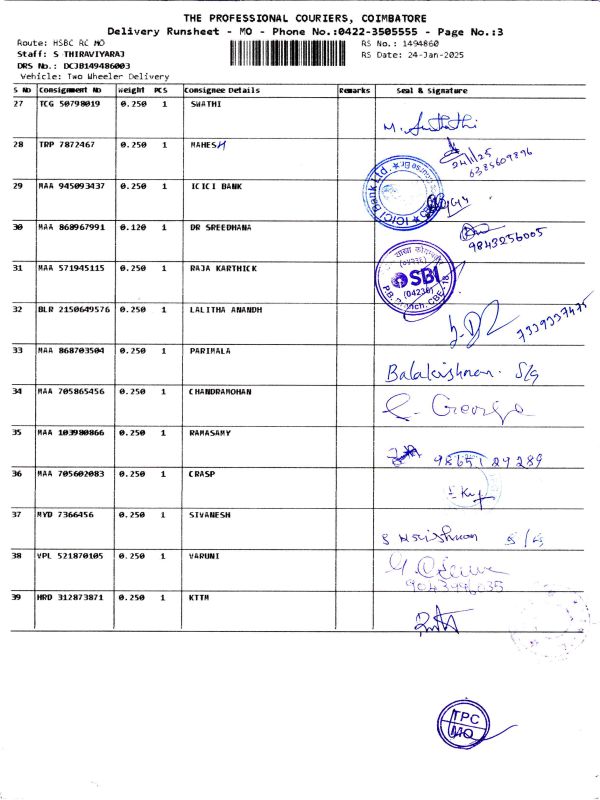 THE PROFESSIONAL COURIERS, COIMBATORE
Delivery Runsheet - MO - Phone No.:0422-3505555 - Page No.:3
Route: HSBC RC MO RS No.: 1494860
Staff: S THIRAVIYARAJ RS Date: 24-Jan-2025
DRS No.: DCJB149486003
Vehicle: Two Wheeler Delivery
S No Consignment No Weight PCS Consignee Details Remarks Seal & Signature
27 TCG 50798019 0.250 1 SWATHI
28 TRP 7872467 0.250 1 MAHESH
24/1/25
6385609896
29 MAA 945093437 0.250 1 ICICI BANK
ICICI Bank Ltd.
30 MAA 868967991 0.120 1 DR SREEDHANA
9843256005
31 MAA 571945115 0.250 1 RAJA KARTHICK
SBI
(04236)
32 BLR 2150649576 0.250 1 LALITHA ANANDH
7339337475
33 MAA 868703504 0.250 1 PARIMALA
Balakrishnan. S/G
34 MAA 705865456 0.250 1 CHANDRAMOHAN
C. George
35 MAA 103980866 0.250 1 RAMASAMY
9865129289
36 MAA 705602083 0.250 1 CRASP
37 MYD 7366456 0.250 1 SIVANESH
38 VPL 521870105 0.250 1 VARUNI
39 HRD 312873871 0.250 1 KTTM
TPC
MO